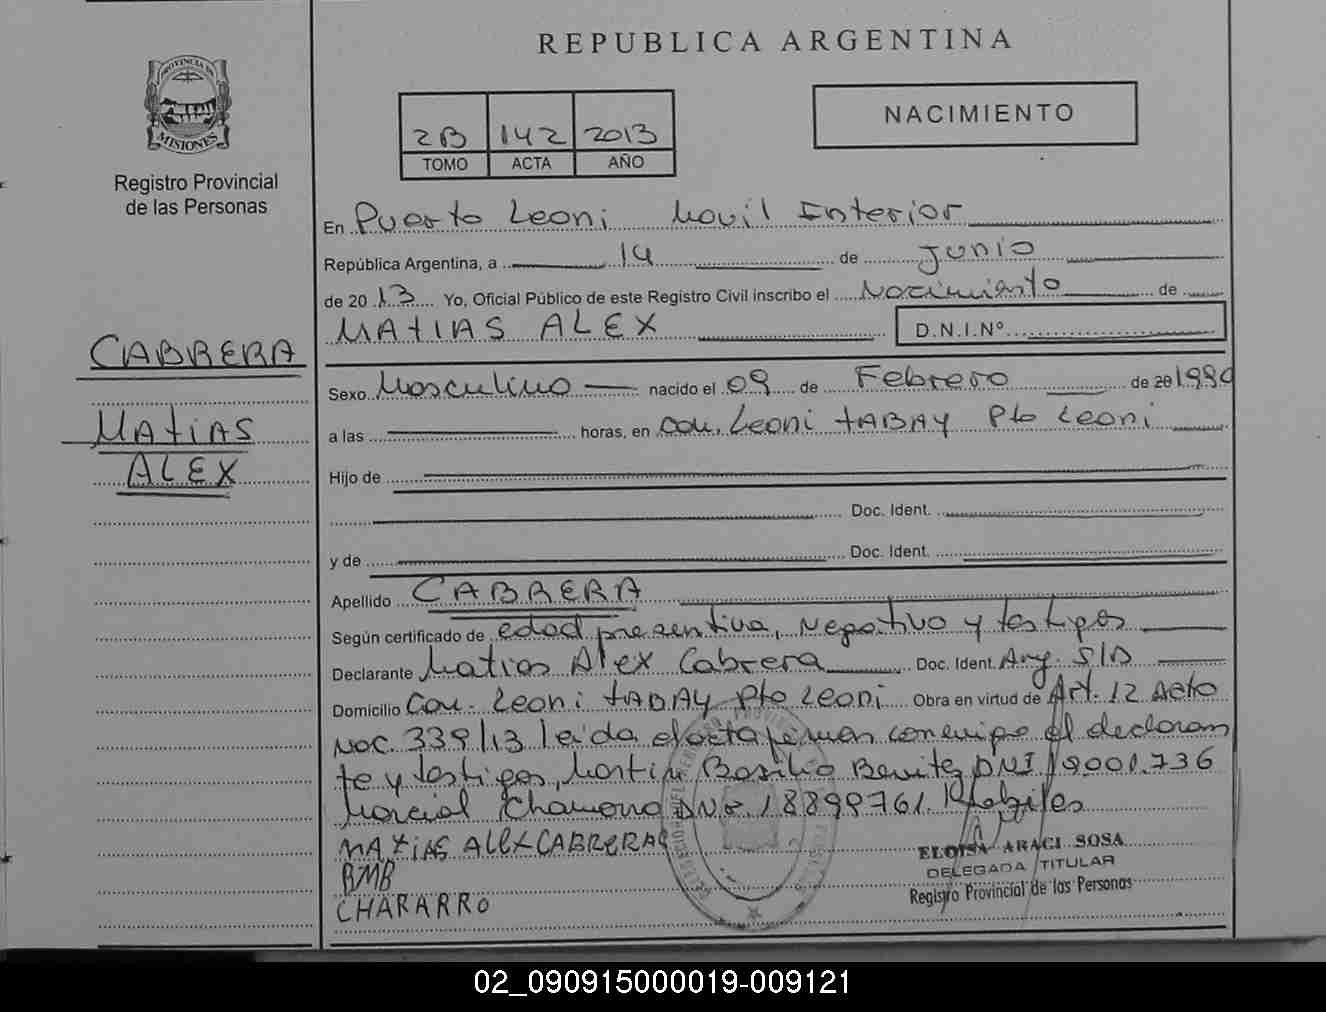 REPUBLICA ARGENTINA
PROVINCIA DE
MISIONES
Registro Provincial
de las Personas
2B 142 2013
TOMO ACTA AÑO
NACIMIENTO
En Puerto Leoni Movil Interior
República Argentina, a 14 de Junio
de 2013 Yo, Oficial Público de este Registro Civil inscribo el Nacimiento de
MATIAS ALEX D.N.I.Nº
CABRERA
MATIAS
ALEX
Sexo Masculino nacido el 09 de Febrero de 20 1990
a las horas, en Com. Leoni TABAY Pto Leoni
Hijo de
Doc. Ident.
y de Doc. Ident.
Apellido CABRERA
Según certificado de edad presentiva, Negativo y testigos
Declarante Matias Alex Cabrera Doc. Ident. Arg. S/D
Domicilio Com. Leoni TABAY Pto Leoni Obra en virtud de Art. 12 Acto
Nac. 339/13 leida el acta firman conmigo el declaran
te y testigos, Martin Basilio Benitez DNI 19001.736
Marcial Chamorro DNI. 18899761.
MATIAS ALEX CABRERA
BMB
CHARARRO
ELOISA ARACI SOSA
DELEGADA TITULAR
Registro Provincial de las Personas
02_090915000019-009121